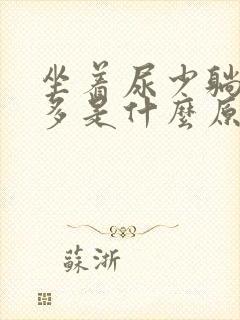 坐着尿少躺
多是什麼原
蘇浙